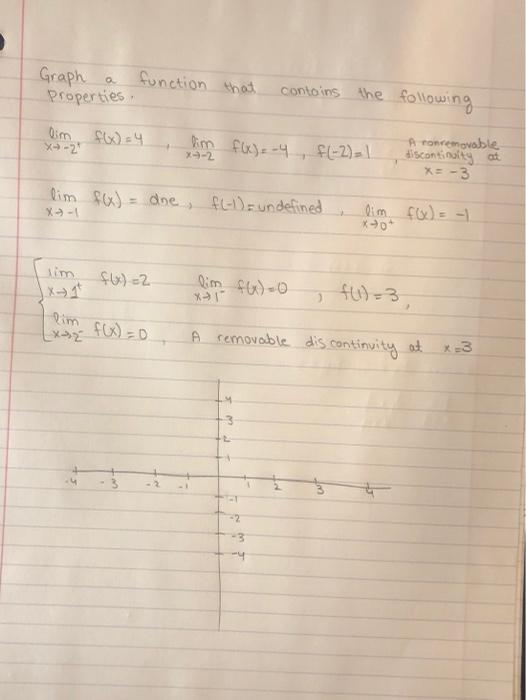 Graph a function that contains the following
properties.
lim x→-2⁺ f(x)=4 , lim x→-2 f(x)=-4 , f(-2)=1 , A nonremovable discontinuity at x=-3
lim x→-1 f(x) = dne , f(-1)=undefined , lim x→0⁺ f(x) = -1
lim x→1⁺ f(x)=2 lim x→1⁻ f(x)=0 , f(1)=3 ,
lim x→2⁻ f(x)=0 , A removable discontinuity at x=3
4
3
2
1
-4 -3 -2 -1 1 2 3 4
-1
-2
-3
-4